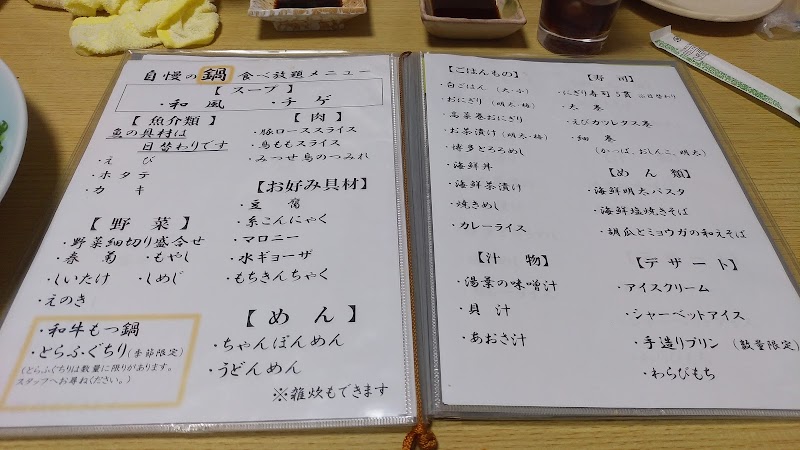 自慢の鍋 食べ放題メニュー
【 スープ 】
・和 風 ・チゲ
【 魚介類 】
魚の具材は
日替わりです
・えび
・ホタテ
・カキ
【 肉 】
・豚ローススライス
・鳥ももスライス
・みつせ鳥のつみれ
【お好み具材】
・豆 腐
・糸こんにゃく
・マロニー
・水ギョーザ
・もちきんちゃく
【 野 菜 】
・野菜細切り盛合せ
・春 菊 ・もやし
・しいたけ ・しめじ
・えのき
・和牛もつ鍋
・とらふぐちり(季節限定)
(とらふぐちりは数量に限りがあります。
スタッフへお尋ねください。)
【 めん 】
・ちゃんぽんめん
・うどんめん
※雑炊もできます
【ごはんもの】
・白ごはん (大・小)
・おにぎり (明太・梅)
・高菜巻おにぎり
・お茶漬け (明太・梅)
・博多とろろめし
・海鮮丼
・海鮮茶漬け
・焼きめし
・カレーライス
【 汁 物 】
・湯葉の味噌汁
・貝 汁
・あおさ汁
【 寿 司 】
・にぎり寿司5貫 ※日替わり
・太 巻
・えびカツレタス巻
・細 巻
(かっぱ、おしんこ、明太)
【 めん 類 】
・海鮮明太パスタ
・海鮮塩焼きそば
・胡瓜とミョウガの和えそば
【デザート】
・アイスクリーム
・シャーベットアイス
・手造りプリン (数量限定)
・わらびもち